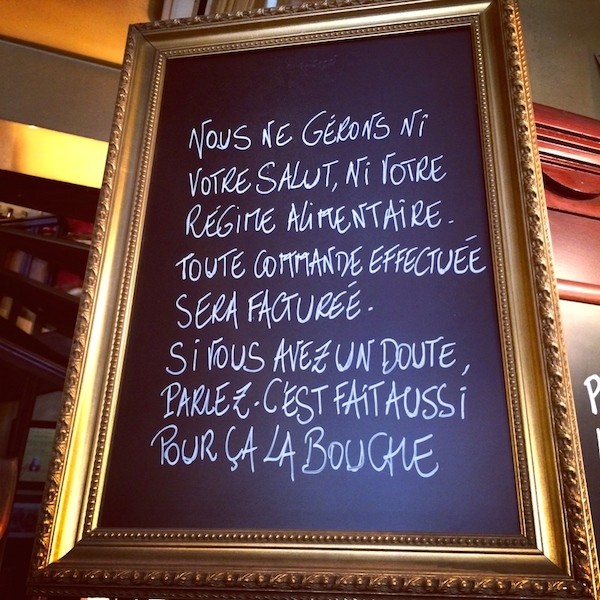 NOUS NE GÉRONS NI
VOTRE SALUT, NI VOTRE
RÉGIME ALIMENTAIRE.
TOUTE COMMANDE EFFECTUÉE
SERA FACTURÉE.
SI VOUS AVEZ UN DOUTE,
PARLEZ. C'EST FAIT AUSSI
POUR ÇA LA BOUCHE